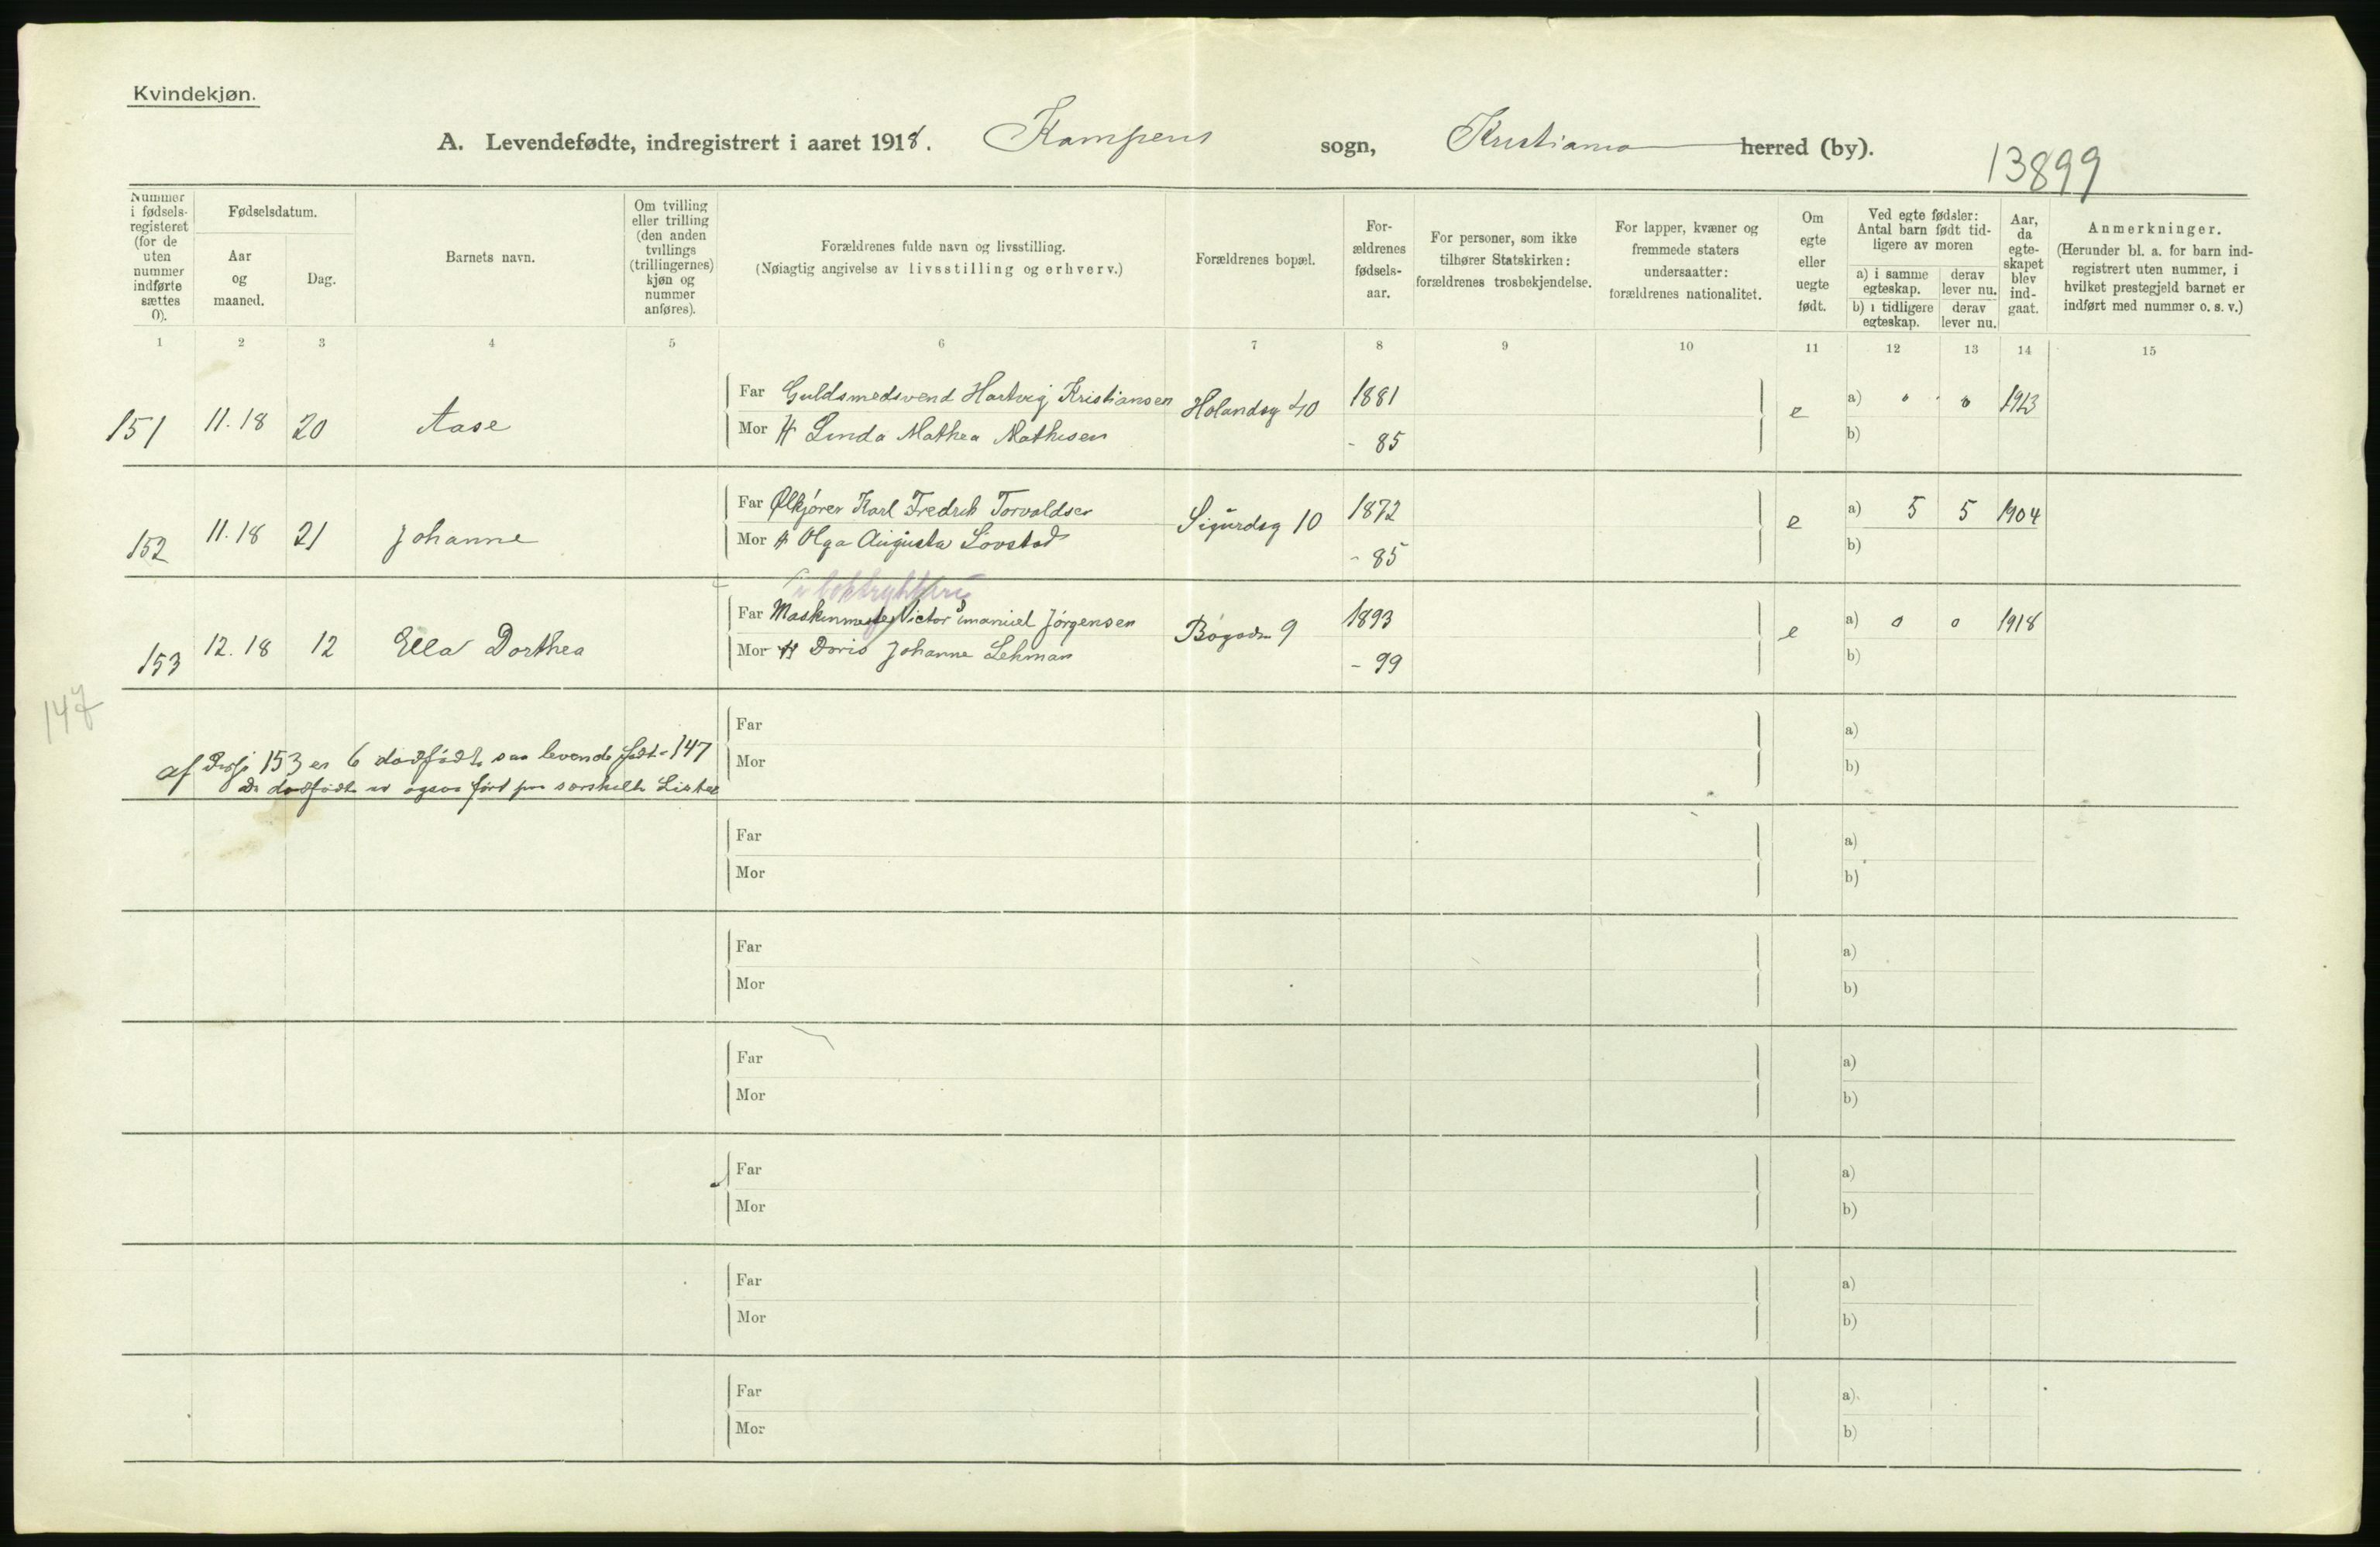 Kvindekjøn.
A. Levendefødte, indregistrert i aaret 1918. Kampens sogn, Kristiania herred (by).
13899
Nummer i fødsels-registeret (for de uten nummer indførte sættes 0).
Fødselsdatum.
Aar og maaned.
Dag.
Barnets navn.
Om tvilling eller trilling (den anden tvillings (trillingernes) kjøn og nummer anføres).
Forældrenes fulde navn og livsstilling.
(Nøiagtig angivelse av livsstilling og erhverv.)
Forældrenes bopæl.
For-ældrenes fødsels-aar.
For personer, som ikke tilhører Statskirken: forældrenes trosbekjendelse.
For lapper, kvæner og fremmede staters undersaatter: forældrenes nationalitet.
Om egte eller uegte født.
Ved egte fødsler: Antal barn født tid-ligere av moren
a) i samme egteskap.
derav lever nu.
b) i tidligere egteskap.
derav lever nu.
Aar, da egte-skapet blev ind-gaat.
Anmerkninger.
(Herunder bl. a. for barn ind-registrert uten nummer, i hvilket prestegjeld barnet er indført med nummer o. s. v.)
1 2 3 4 5 6 7 8 9 10 11 12 13 14 15
151 11.18 20 Aase
Far Guldsmedsvend Hartvig Kristiansen Holandsg 40 1881 e a) 0 0 1913
Mor H Linda Mathea Mathisen - 85 b)
152 11.18 21 Johanne
Far Ølkjører Karl Fredrik Torvaldsen Sigurdsg 10 1872 e a) 5 5 1904
Mor H Olga Augusta Lovstad - 85 b)
i boktrykkeri
153 12.18 12 Ella Dorthea
Far Maskinmester Victor Emanuel Jørgensen Bøgadn 9 1893 e a) 0 0 1918
Mor H Doris Johanne Lehman - 99 b)
147
af disse 153 er 6 dødfødte saa levende født = 147
De dødfødte er ogsaa ført paa særskilte Lister
Far a)
Mor b)
Far a)
Mor b)
Far a)
Mor b)
Far a)
Mor b)
Far a)
Mor b)
Far a)
Mor b)
Far a)
Mor b)